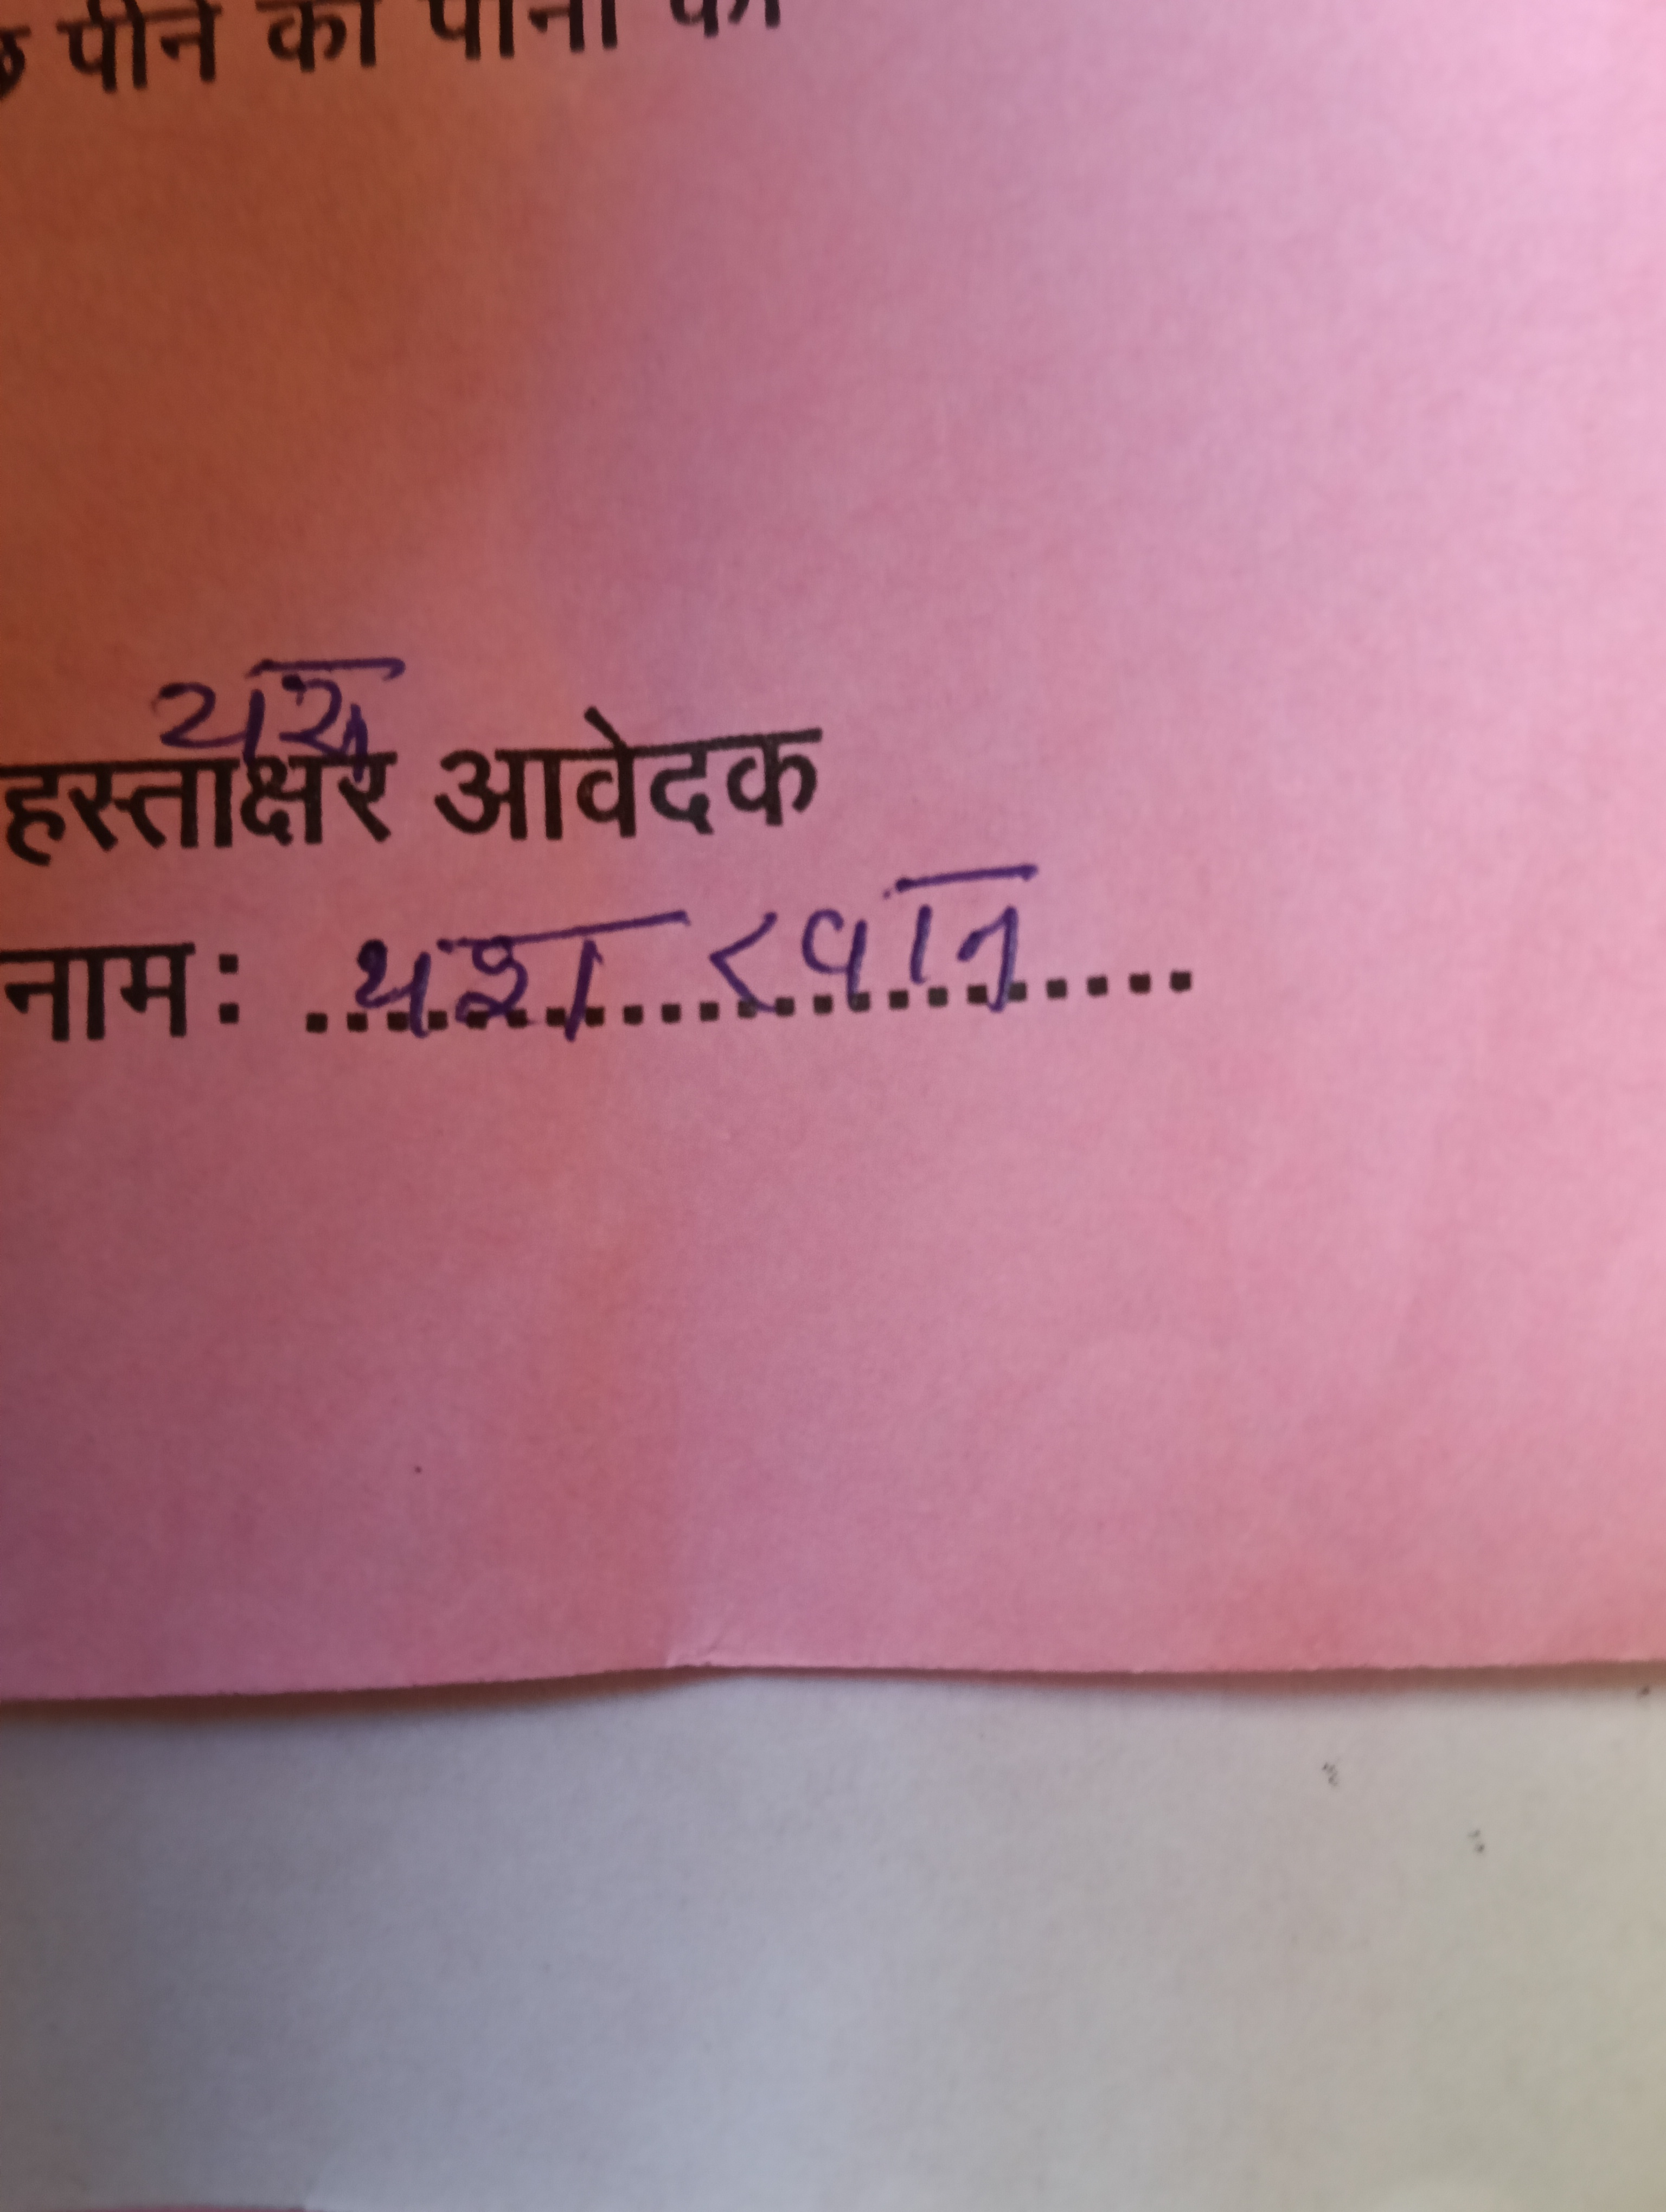 पीने का पानी की
यश
हस्ताक्षर आवेदक
नाम: यश खान